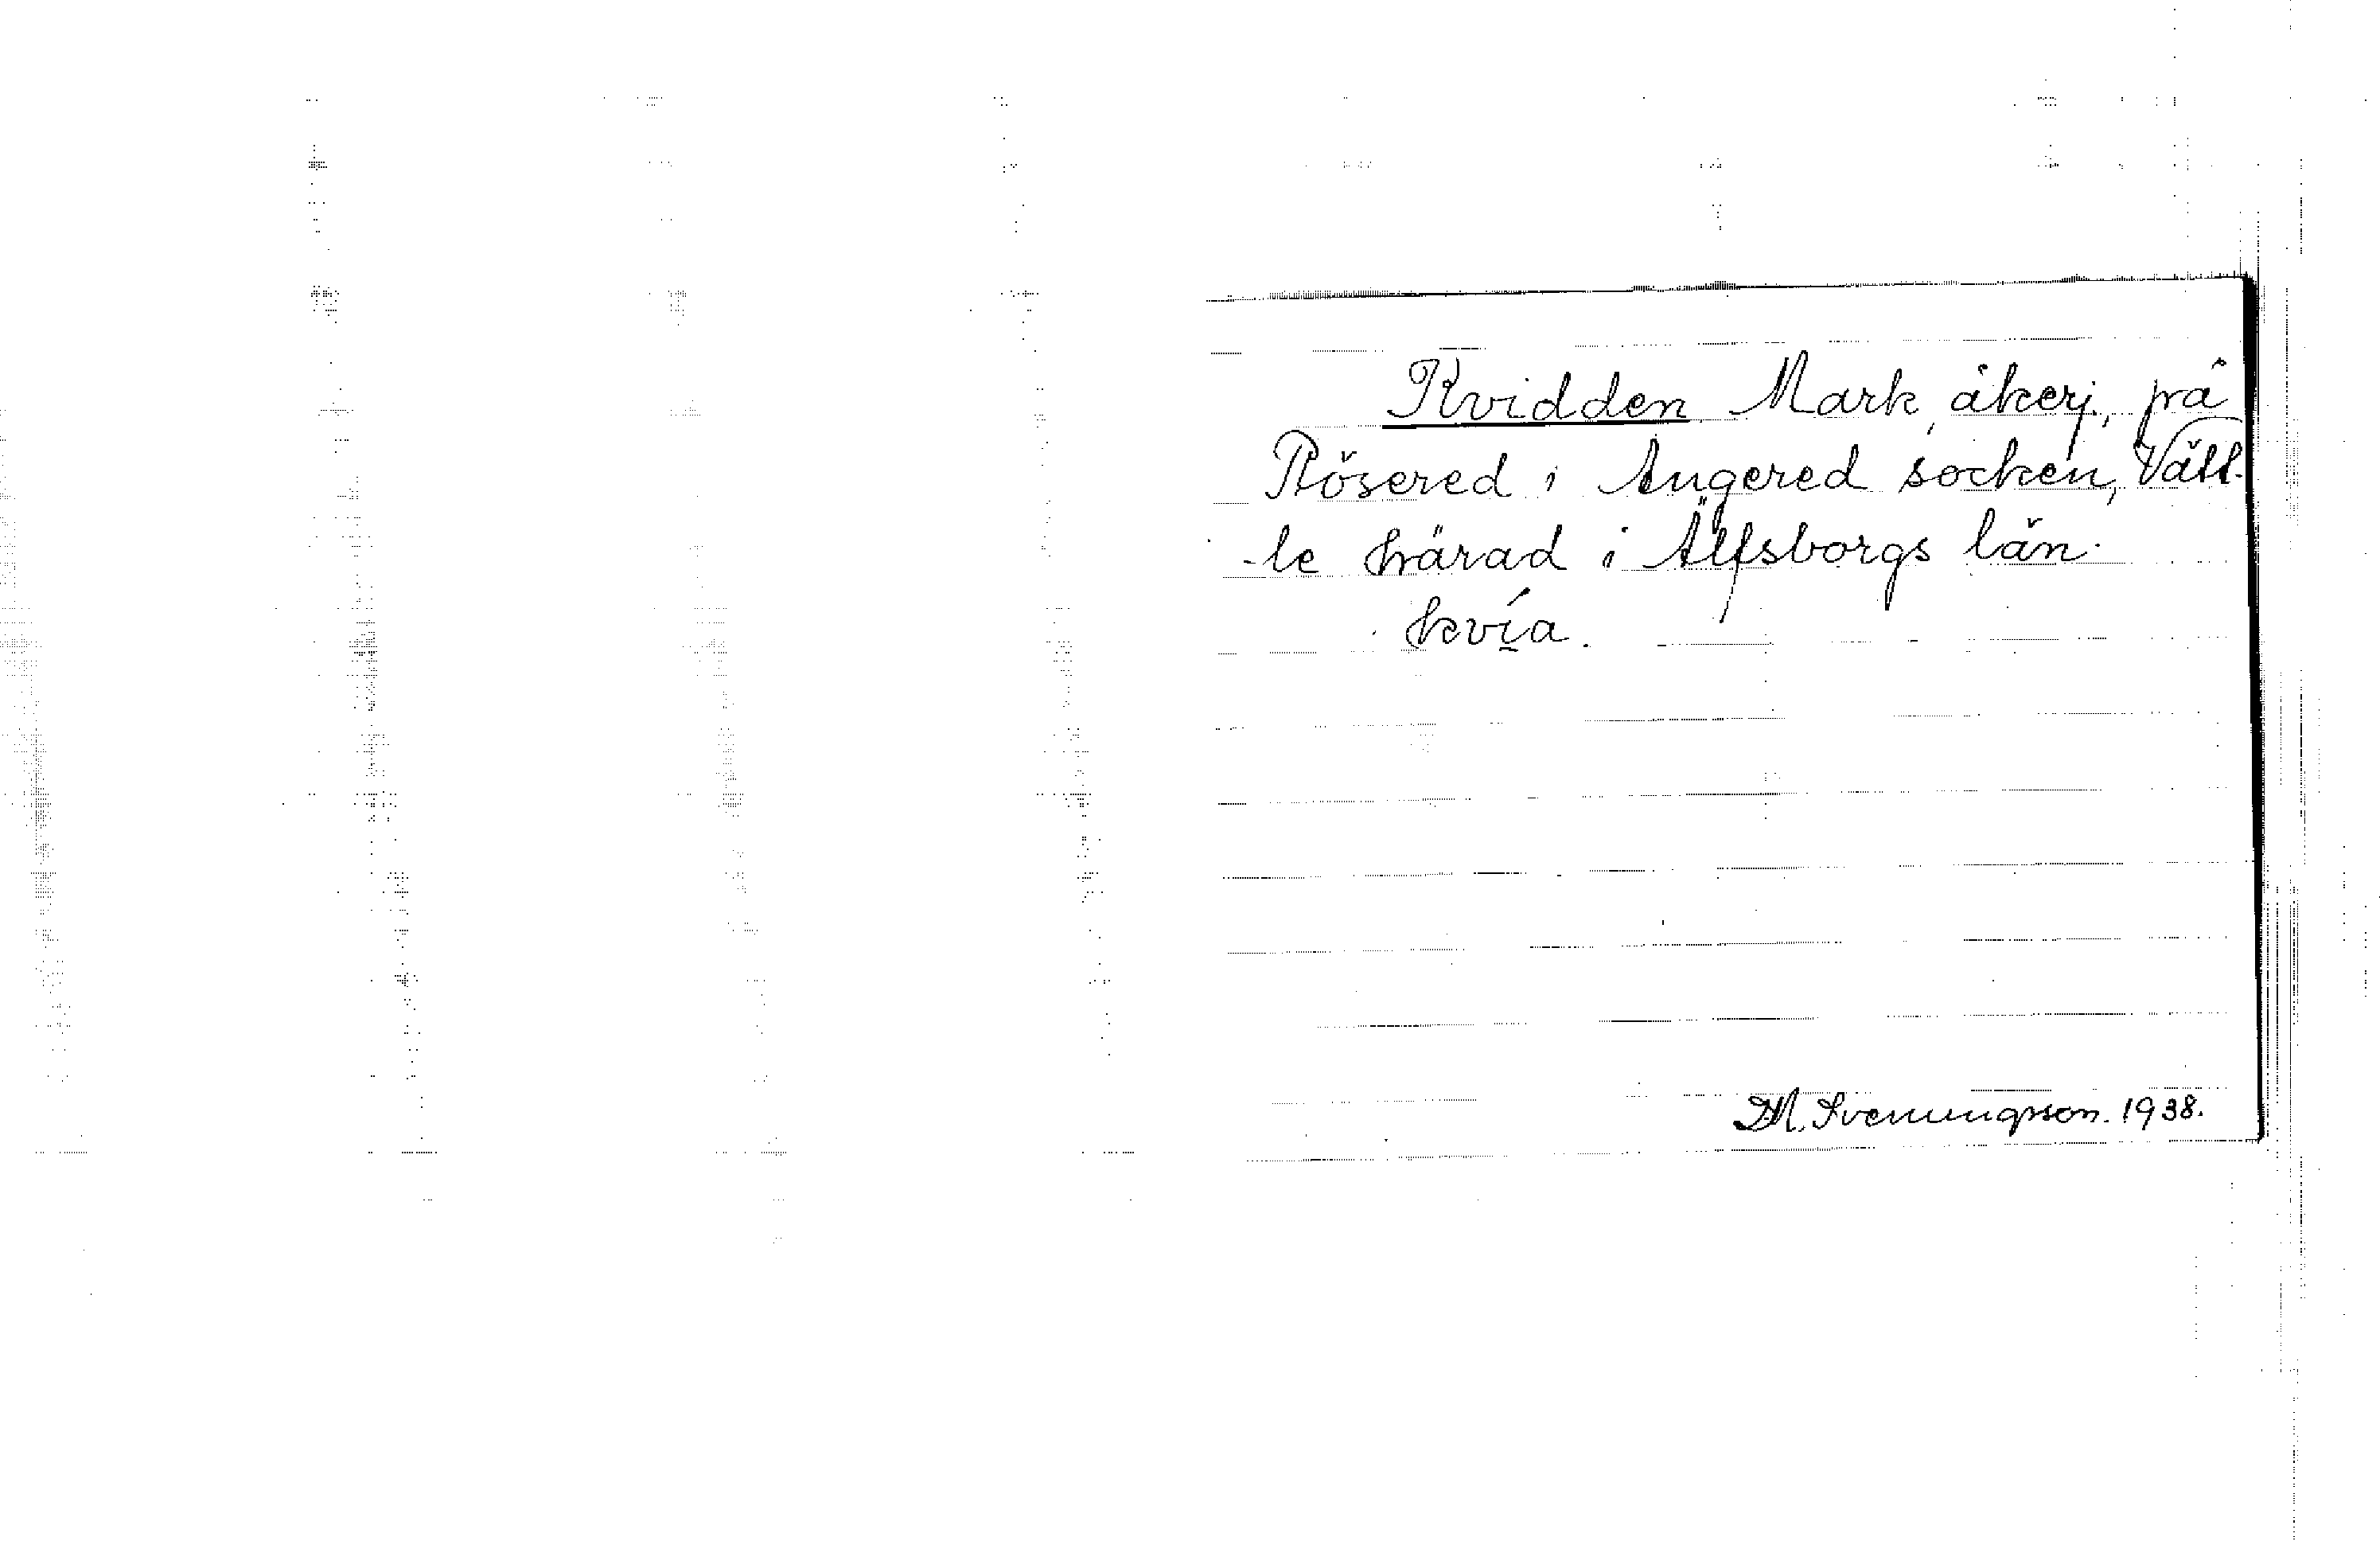 Kvidden Mark, åkerj., på
Rösered i Angered socken, Vätt-
-le härad i Älfsborgs län.
kvía.
M. Svenungsson. 1938.